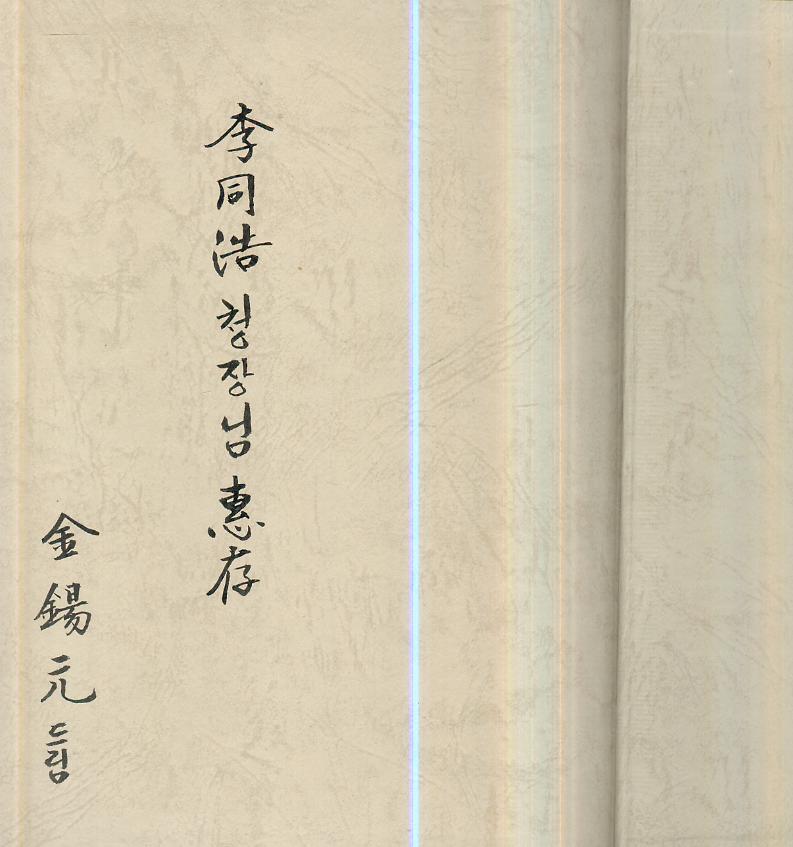 李同浩 청장님 惠存
金錫元 드림